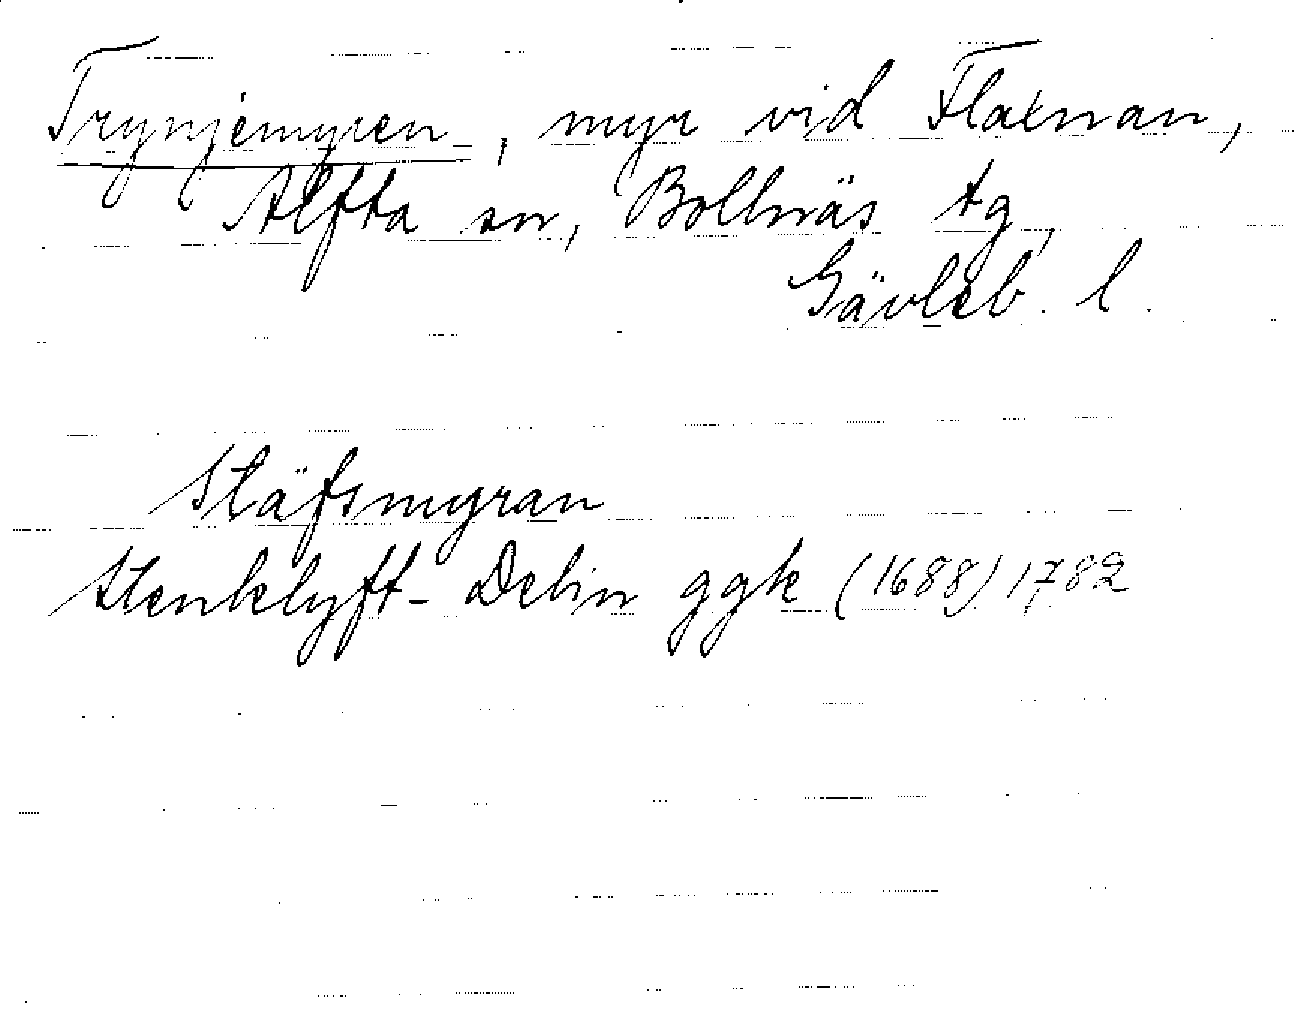 Trynjemyren, myr vid Flaxnan,
Alfta sn, Bollnäs tg,
Gävleb. l.
Stäfsmyran
Stenklyft- Delin ggk (1688) 1782